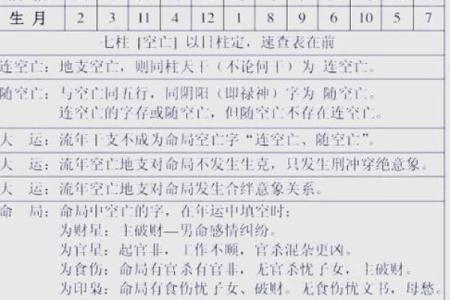 生月 2 3 11 4 12 1 8 9 6 10 5 7
七柱 [空亡] 以日柱定，速查表在前
连空亡：地支空亡，则同柱天干（不论何干）为 连空亡。
随空亡：与空亡同五行，同阴阳（即禄神）字为 随空亡。
连空亡的字存或随空亡，但随空亡不存在连空亡。
大 运：流年干支不成为命局空亡字“连空亡、随空亡”。
大 运：流年空亡地支对命局不发生生克，只发生刑冲穿绝意象。
大 运：流年空亡地支对命局发生合绊意象关系。
命 局：命局中空亡的字，在年运中填空时：
为财星：主破财—男命感情纠纷。
为官星：起官非，工作不顺，官杀混杂更凶。
为食伤：命局有官杀有官非，无官杀忧子女，主破财。
为印枭：命局有食伤忧子女、破财。无食伤忧文书，母愁。